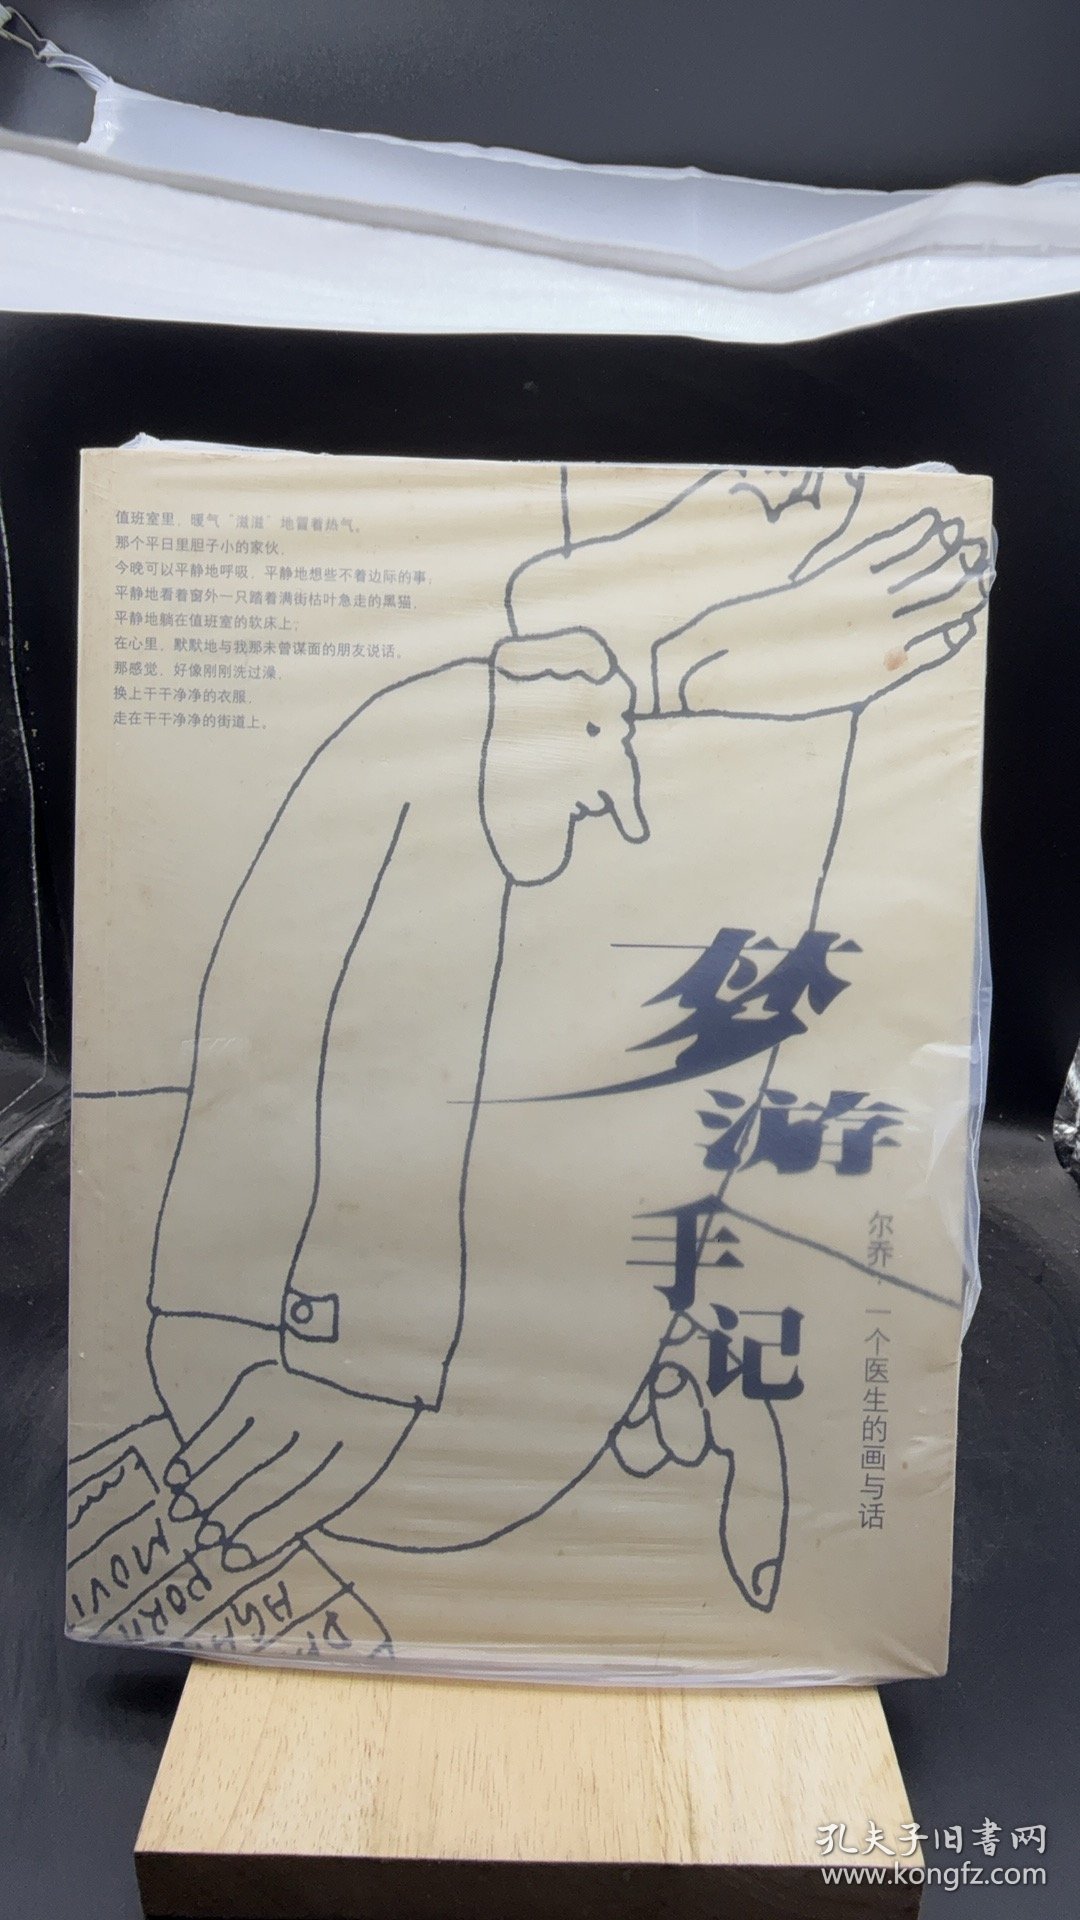 值班室里，暖气“滋滋”地冒着热气。
那个平日里胆子小的家伙，
今晚可以平静地呼吸，平静地想些不着边际的事；
平静地看着窗外一只踏着满街枯叶急走的黑猫，
平静地躺在值班室的软床上；
在心里，默默地与我那未曾谋面的朋友说话。
那感觉，好像刚刚洗过澡，
换上干干净净的衣服，
走在干干净净的街道上。
梦
游
手
记
尔乔：一个医生的画与话
MOVI
PORN
孔夫子旧書网
www.kongfz.com